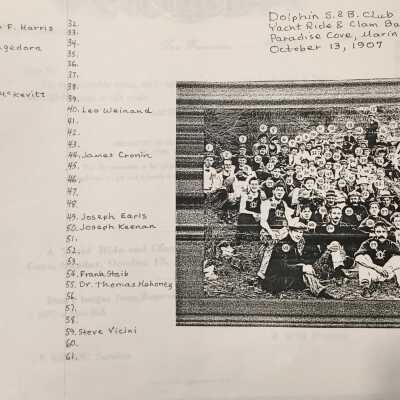 F. Harris
McKevitt
32.
33.
34.
35.
36.
37.
38.
39.
40. Leo Weinand
41.
42.
43.
44. James Cronin
45.
46.
47.
48.
49. Joseph Earls
50. Joseph Keenan
51.
52.
53.
54. Frank Staib
55. Dr. Thomas Mahoney
56.
57.
58.
59. Steve Vicini
60.
61.
Dolphin S. & B. Club
Yacht Ride & Clam Ba
Paradise Cove, Marin
October 13, 1907